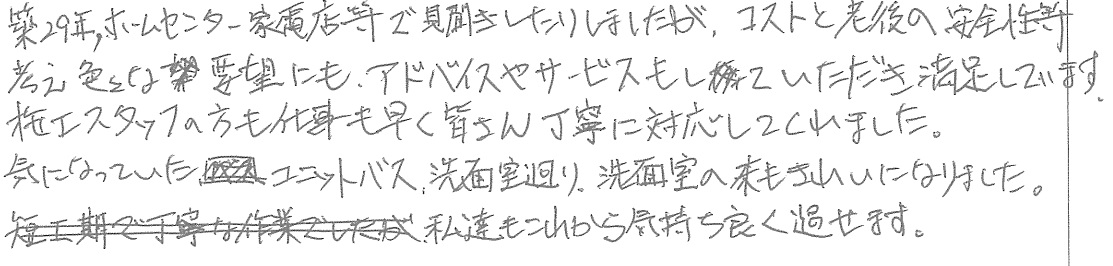 築29年,ホームセンター家電店等で見聞きしたりしましたが、コストと老後の安全性等
考え色々な要望にも、アドバイスやサービスもしていただき満足しています。
施工スタッフの方も仕事も早く皆さん丁寧に対応してくれました。
気になっていたユニットバス、洗面室廻り、洗面室の床もきれいになりました。
短工期で丁寧な作業でしたが 私達もこれから気持ち良く過せます。